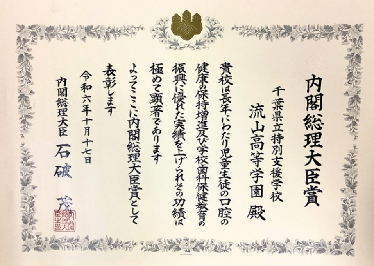 内閣総理大臣賞
千葉県立特別支援学校
流山高等学園 殿
貴校は長年にわたり児童生徒の口腔の
健康の保持増進及び学校歯科保健教育の
振興に優れた実績を上げられその功績は
極めて顕著であります
よってここに内閣総理大臣賞として
表彰します
令和六年十月十七日
内閣総理大臣 石破 茂